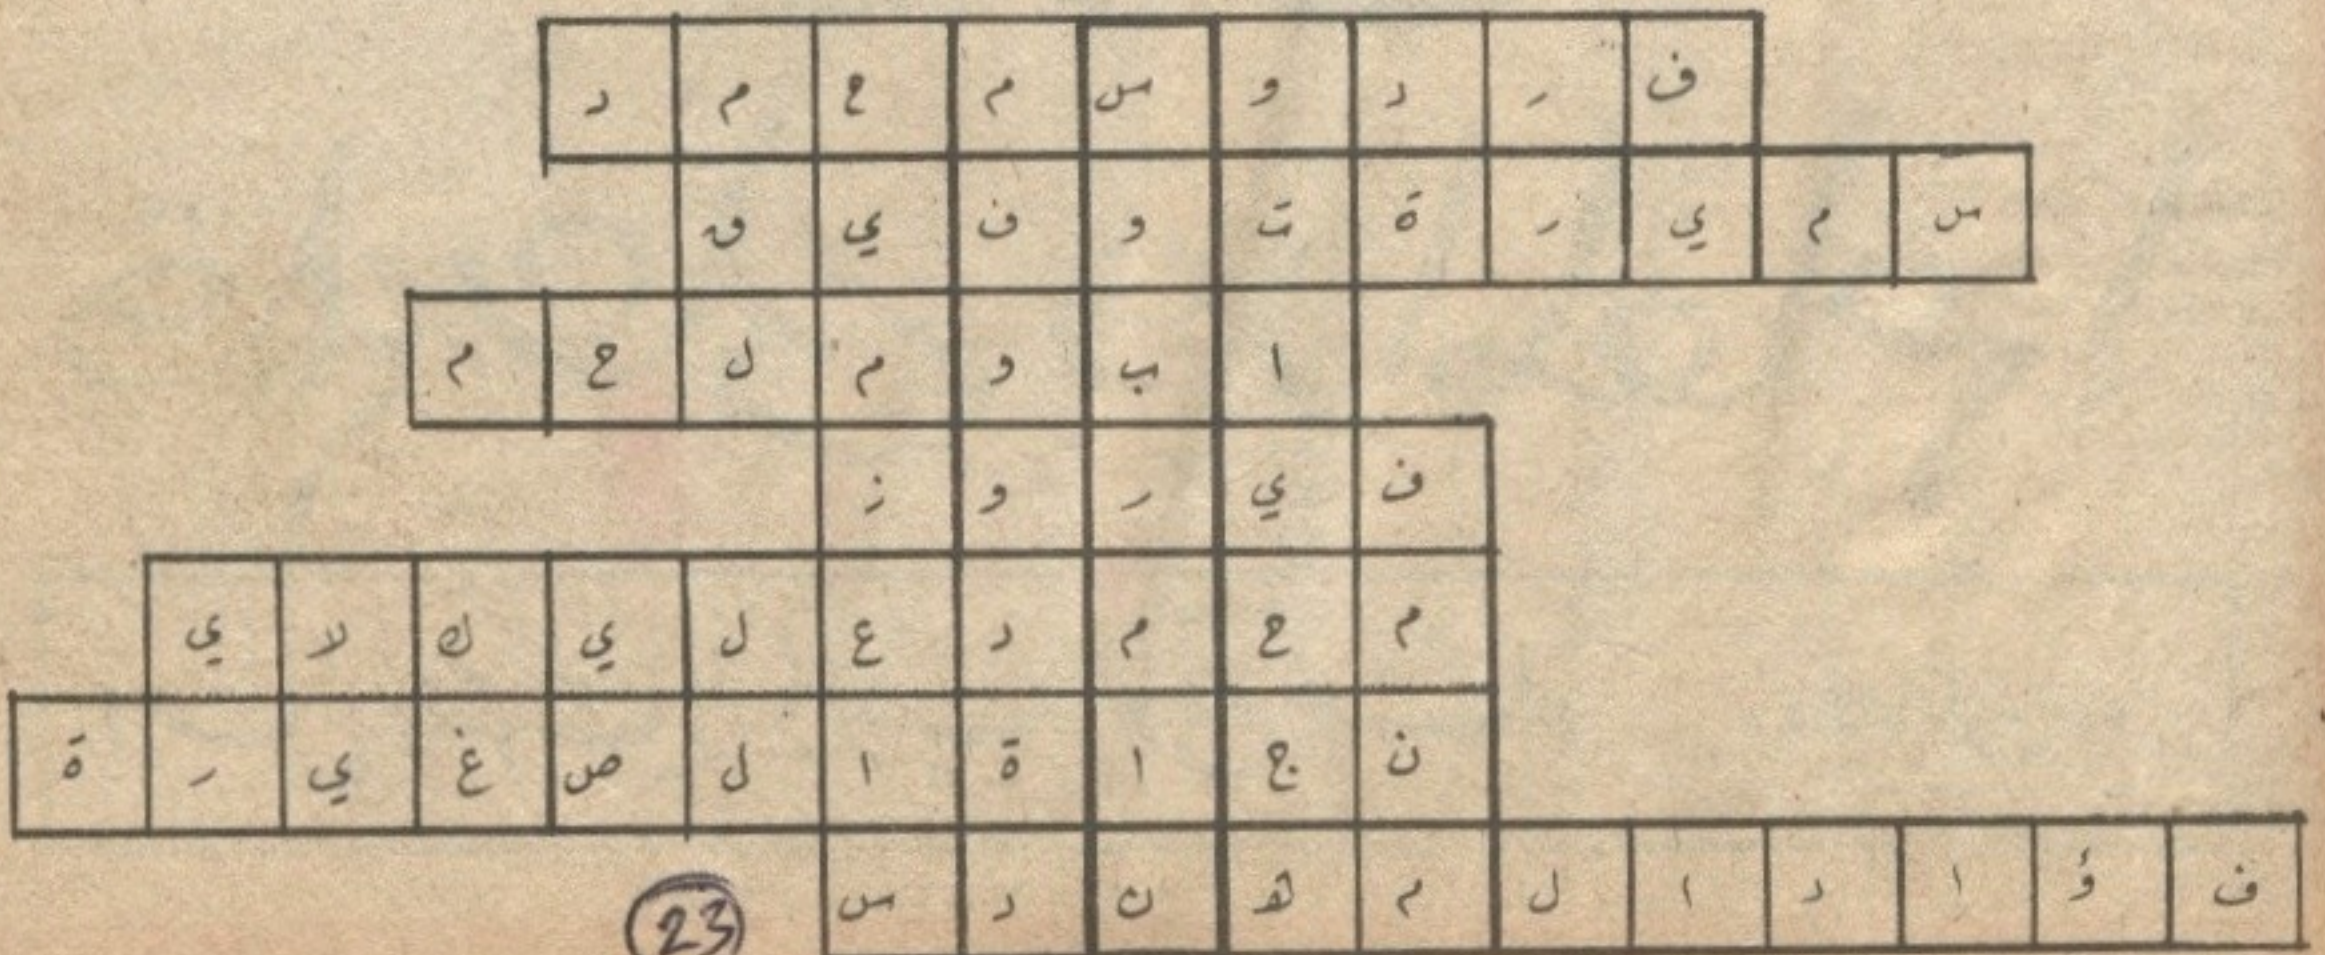 ف ر د و س م ح م د
س م ي ر ة ت و ف ي ق
ا ب و م ل ح م
ف ي ر و ز
م ح م د ع ل ي ك لا ي
ن ج ا ة ا ل ص غ ي ر ة
ف ؤ ا د ا ل م ه ن د س
23